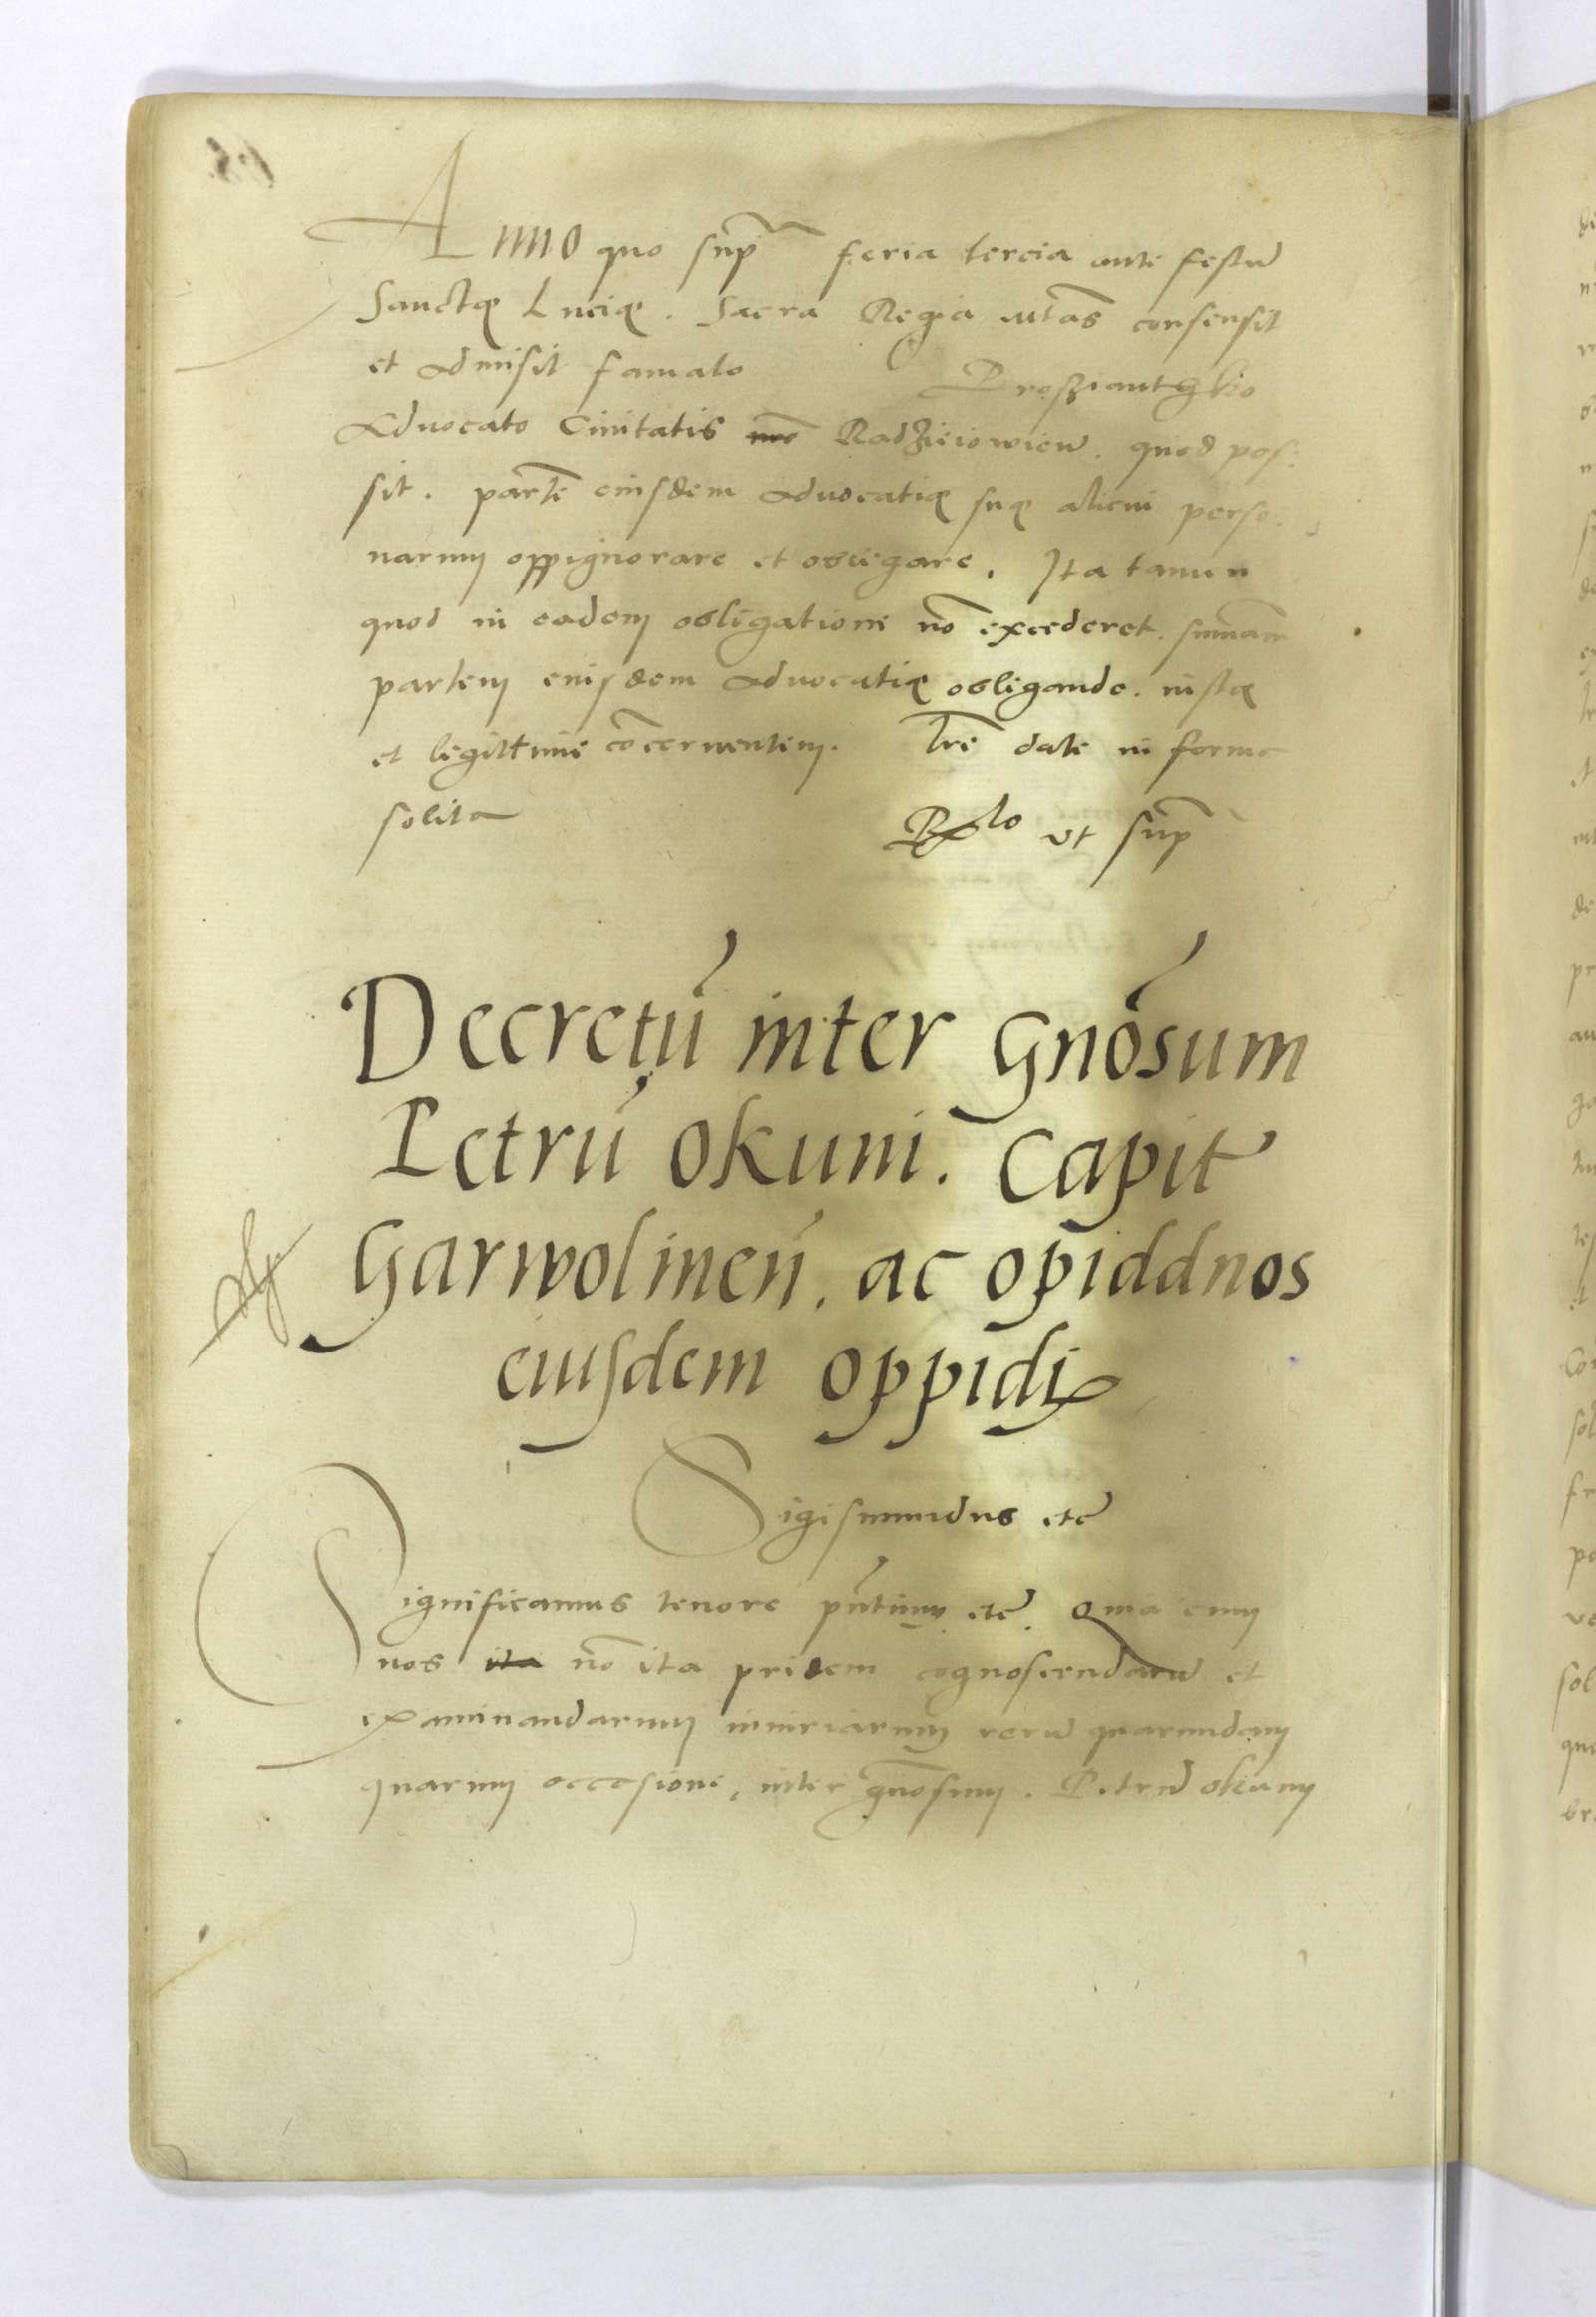 Anno quo sup feria tercia ante festū
Sanctę Lucię. Sacra Regia Mtās consensit
et admisit famato Prosziantghko
Advocato Civitatis Radzieiowien. quod pos:
sit. partē eiusdem advocatię suę alicui perso:
narum oppignorare et obligare. Ita tamen
quod in eadem obligatione nō excederet. summam
partem eiusdem advocatię obligande. iustę
et legittime cōcernentem. Lrē date in forma
solita Rlo ut sup
Decretū inter Gnōsum
Petrū Okuni. Capit
Garwolineñ. ac opiddnos
eiusdem oppidi
Sigismundus etc
Significamus tenore pn̄tium etc. Quia cum
nos ita nō ita pridem cognoscendarū et
examinandarum iniuriarum rerū quarundam
quarum occasione, inter gnōsum. Petrū okunij